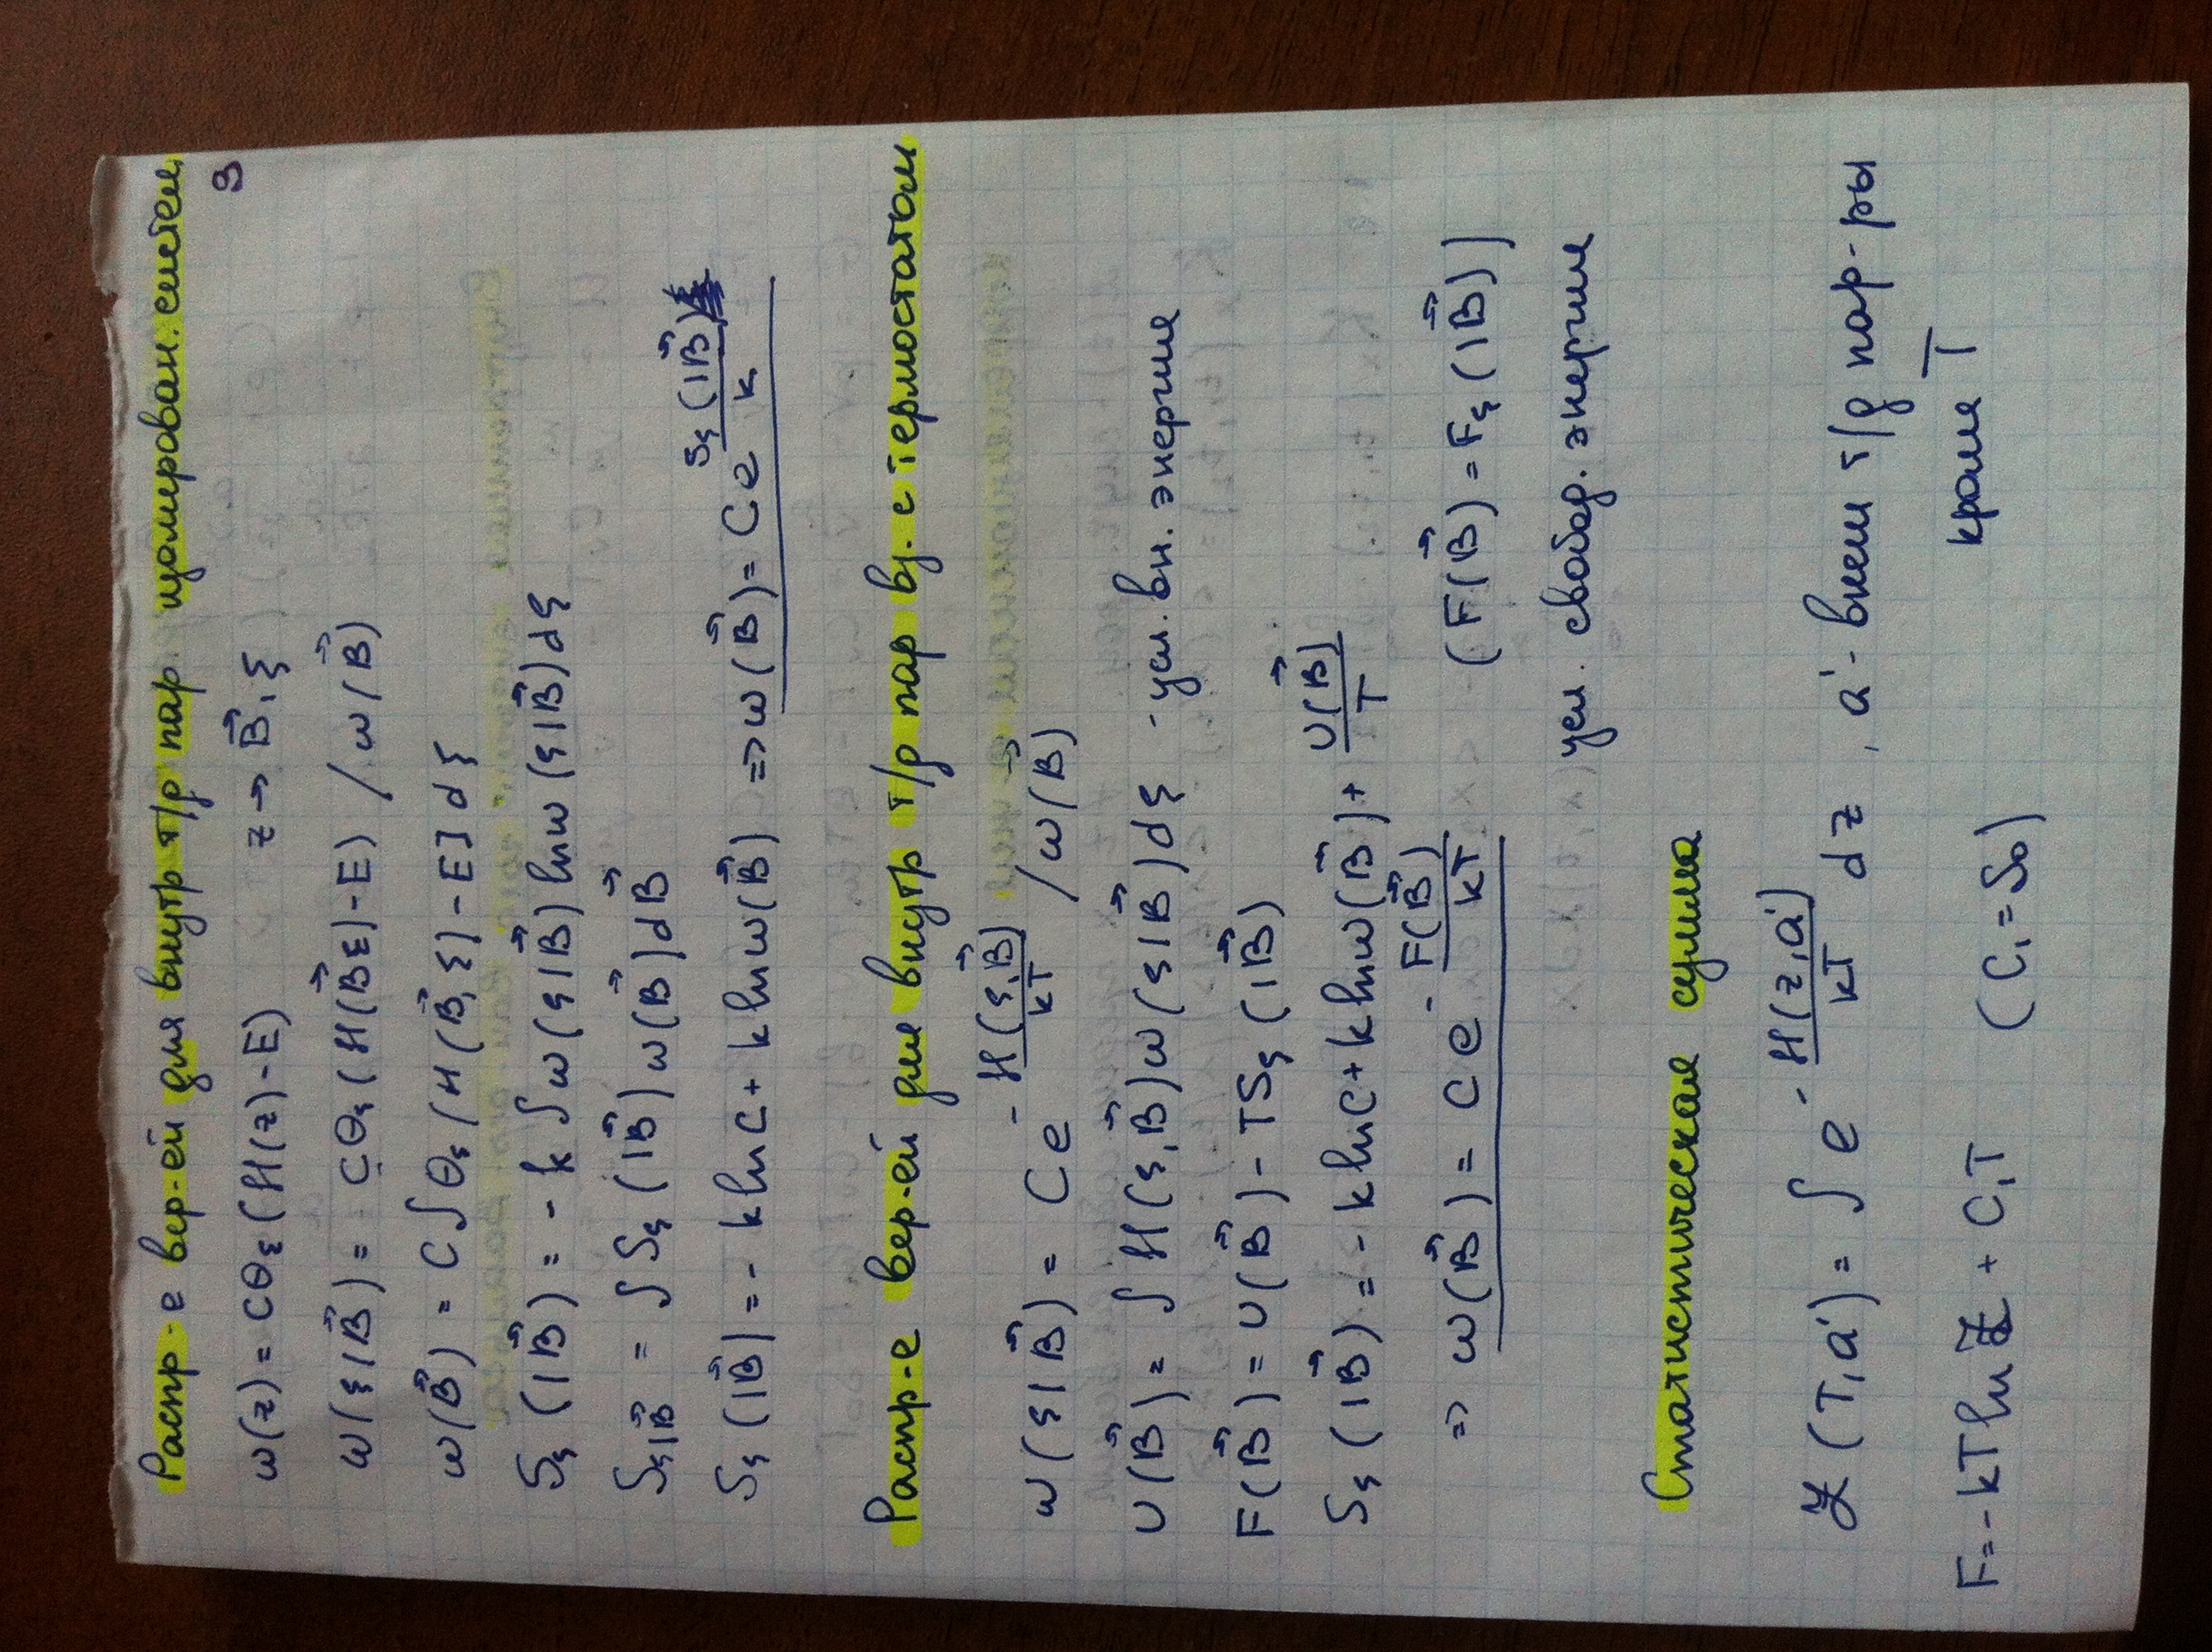 Распр-е вер-ей для внутр т/д пар. изолирован. систем
9
w(z) = Cθ_ε(H(z)-E)   z → B⃗, ξ
w(ξ|B⃗) = Cθ_ε(H(B⃗ξ)-E) / w(B⃗)
w(B⃗) = C∫θ_ε[H(B⃗,ξ)-E]dξ
S_ξ(|B⃗) = -k∫w(ξ|B⃗)lnw(ξ|B⃗)dξ
S_ξ|B⃗ = ∫S_ξ(|B⃗)w(B⃗)dB⃗
S_ξ(|B⃗) = -klnC + klnw(B⃗) => w(B⃗) = Ce^{S_ξ(|B⃗)/k}
Распр-е вер-ей для внутр т/д пар вз. с термостатом
w(ξ|B⃗) = Ce^{-H(ξ,B⃗)/kT} / w(B⃗)
U(B⃗) = ∫H(ξ,B⃗)w(ξ|B⃗)dξ - усл. вн. энергия
F(B⃗) = U(B⃗) - TS_ξ(|B⃗)
S_ξ(|B⃗) = -klnC + klnw(B⃗) + U(B⃗)/T
=> w(B⃗) = Ce^{-F(B⃗)/kT}   (F(B⃗) = F_ξ(|B⃗))
усл. свобод. энергия
Статистическая сумма
Z(T,a') = ∫e^{-H(z,a')/kT}dz, a' - внеш т/д пар-ры
кроме T
F = -kTlnZ + C₁T   (C₁ = S₀)